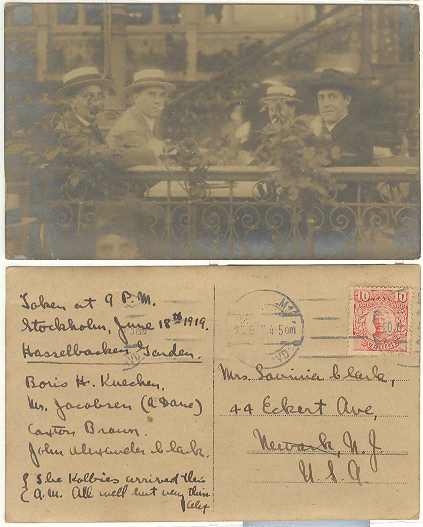 Taken at 9 P.M.
Stockholm, June 18th 1919.
Hasselbacken Garden.
Boris H. Kuechen,
Mr. Jacobsen (A Dane)
Caxton Brown.
John Alexander Clark.
The Kolbies arrived this
A.M. All well but very thin
Mrs. Lavinia Clark,
44 Eckert Ave,
Newark, N.J.
U.S.A.
10 10